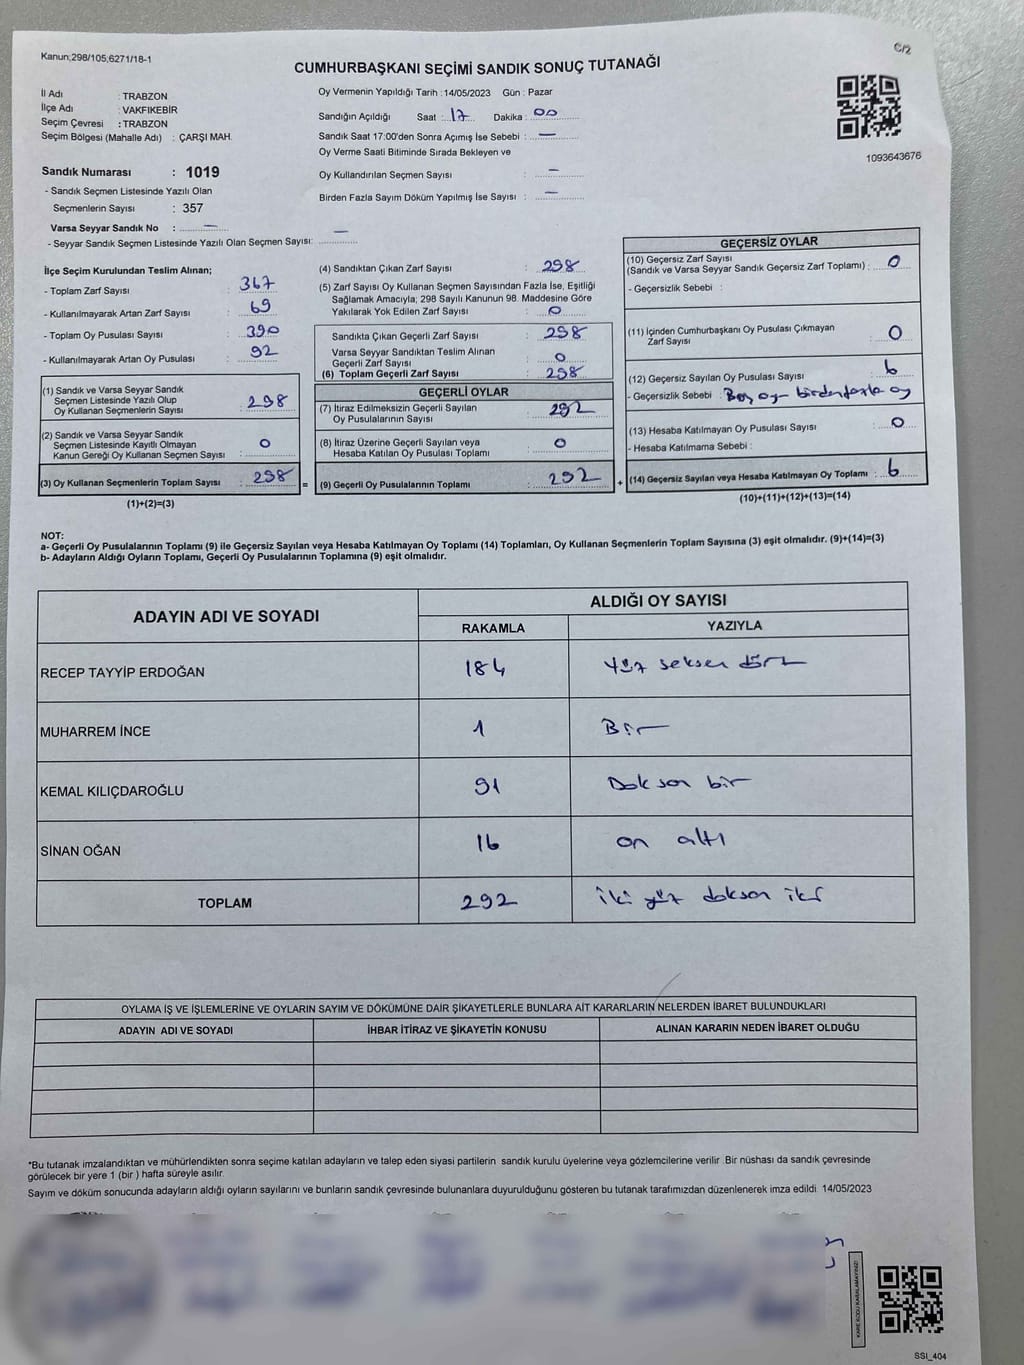 Kanun;298/105;6271/18-1
C/2
CUMHURBAŞKANI SEÇİMİ SANDIK SONUÇ TUTANAĞI
İl Adı : TRABZON
İlçe Adı : VAKFIKEBİR
Seçim Çevresi : TRABZON
Seçim Bölgesi (Mahalle Adı) : ÇARŞI MAH.
Oy Vermenin Yapıldığı Tarih :14/05/2023 Gün : Pazar
Sandığın Açıldığı Saat : 17 Dakika : 00
Sandık Saat 17:00'den Sonra Açımış İse Sebebi : —
Oy Verme Saati Bitiminde Sırada Bekleyen ve
Oy Kullandırılan Seçmen Sayısı : —
Birden Fazla Sayım Döküm Yapılmış İse Sayısı : —
1093643676
Sandık Numarası : 1019
- Sandık Seçmen Listesinde Yazılı Olan
Seçmenlerin Sayısı : 357
Varsa Seyyar Sandık No : —
- Seyyar Sandık Seçmen Listesinde Yazılı Olan Seçmen Sayısı: —
İlçe Seçim Kurulundan Teslim Alınan;
- Toplam Zarf Sayısı : 367
- Kullanılmayarak Artan Zarf Sayısı : 69
- Toplam Oy Pusulası Sayısı : 390
- Kullanılmayarak Artan Oy Pusulası : 92
(1) Sandık ve Varsa Seyyar Sandık
Seçmen Listesinde Yazılı Olup
Oy Kullanan Seçmenlerin Sayısı : 298
(2) Sandık ve Varsa Seyyar Sandık
Seçmen Listesinde Kayıtlı Olmayan
Kanun Gereği Oy Kullanan Seçmen Sayısı : 0
(3) Oy Kullanan Seçmenlerin Toplam Sayısı : 298 =
(1)+(2)=(3)
(4) Sandıktan Çıkan Zarf Sayısı : 298
(5) Zarf Sayısı Oy Kullanan Seçmen Sayısından Fazla İse, Eşitliği
Sağlamak Amacıyla; 298 Sayılı Kanunun 98. Maddesine Göre
Yakılarak Yok Edilen Zarf Sayısı : 0
Sandıkta Çıkan Geçerli Zarf Sayısı : 298
Varsa Seyyar Sandıktan Teslim Alınan
Geçerli Zarf Sayısı : 0
(6) Toplam Geçerli Zarf Sayısı : 298
GEÇERLİ OYLAR
(7) İtiraz Edilmeksizin Geçerli Sayılan
Oy Pusulasının Sayısı : 292
(8) İtiraz Üzerine Geçerli Sayılan veya
Hesaba Katılan Oy Pusulası Toplamı : 0
(9) Geçerli Oy Pusulalarının Toplamı : 292 +
GEÇERSİZ OYLAR
(10) Geçersiz Zarf Sayısı
(Sandık ve Varsa Seyyar Sandık Geçersiz Zarf Toplamı) : 0
- Geçersizlik Sebebi :
(11) İçinden Cumhurbaşkanı Oy Pusulası Çıkmayan
Zarf Sayısı : 0
(12) Geçersiz Sayılan Oy Pusulası Sayısı : 6
- Geçersizlik Sebebi : Boş oy birden fazla oy
(13) Hesaba Katılmayan Oy Pusulası Sayısı : 0
- Hesaba Katılmama Sebebi :
(14) Geçersiz Sayılan veya Hesaba Katılmayan Oy Toplamı : 6
(10)+(11)+(12)+(13)=(14)
NOT:
a- Geçerli Oy Pusulalarının Toplamı (9) ile Geçersiz Sayılan veya Hesaba Katılmayan Oy Toplamı (14) Toplamları, Oy Kullanan Seçmenlerin Toplam Sayısına (3) eşit olmalıdır. (9)+(14)=(3)
b- Adayların Aldığı Oyların Toplamı, Geçerli Oy Pusulalarının Toplamına (9) eşit olmalıdır.
ADAYIN ADI VE SOYADI
ALDIĞI OY SAYISI
RAKAMLA YAZIYLA
RECEP TAYYİP ERDOĞAN 184 Yüz seksen dört
MUHARREM İNCE 1 Bir
KEMAL KILIÇDAROĞLU 91 Doksan bir
SİNAN OĞAN 16 on altı
TOPLAM 292 iki yüz doksan iki
OYLAMA İŞ VE İŞLEMLERİNE VE OYLARIN SAYIM VE DÖKÜMÜNE DAİR ŞİKAYETLERLE BUNLARA AİT KARARLARIN NELERDEN İBARET BULUNDUKLARI
ADAYIN ADI VE SOYADI İHBAR İTİRAZ VE ŞİKAYETİN KONUSU ALINAN KARARIN NEDEN İBARET OLDUĞU
*Bu tutanak imzalandıktan ve mühürlendikten sonra seçime katılan adayların ve talep eden siyasi partilerin sandık kurulu üyelerine veya gözlemcilerine verilir .Bir nüshası da sandık çevresinde
görülecek bir yere 1 (bir ) hafta süreyle asılır.
Sayım ve döküm sonucunda adayların aldığı oyların sayılarını ve bunların sandık çevresinde bulunanlara duyurulduğunu gösteren bu tutanak tarafımızdan düzenlenerek imza edildi 14/05/2023
KARE KODU KARALAMAYINIZ!
SSI_404